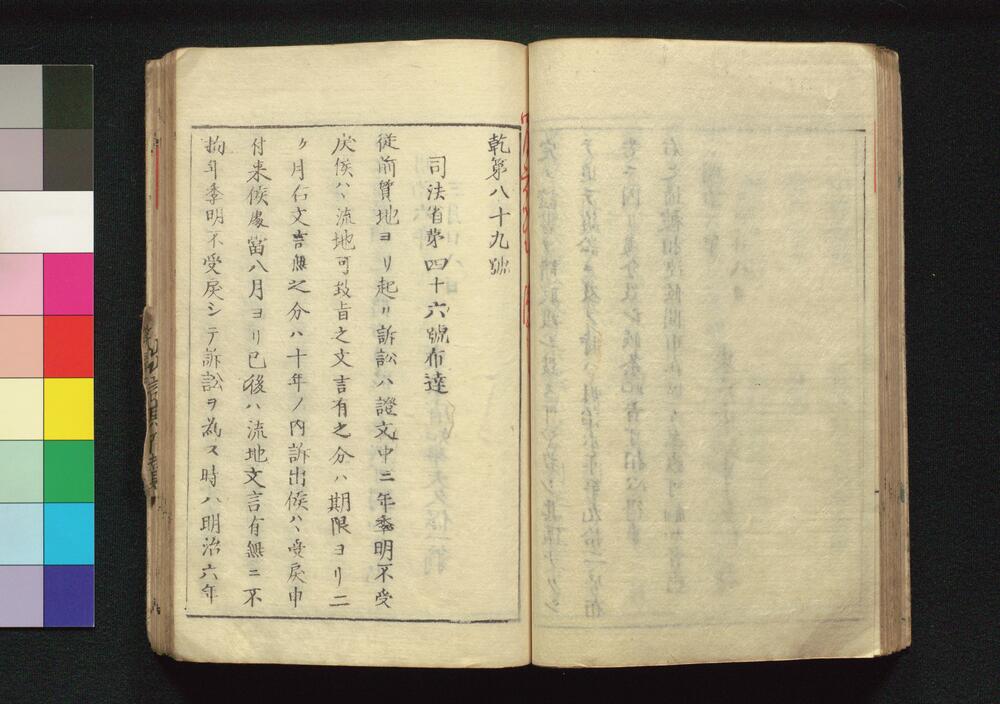 乾第八十九號
司法省第四十六號布達
従前質地ヨリ起リ訴訟ハ證文中ニ年季明不受
戻候ハヽ流地可致旨之文言有之分ハ期限ヨリ二
ケ月右文言無之分ハ十年ノ内訴出候ハヽ受戻申
付来候處當八月ヨリ已後ハ流地文言有無ニ不
拘年季明不受戻シテ訴訟ヲ為ス時ハ明治六年